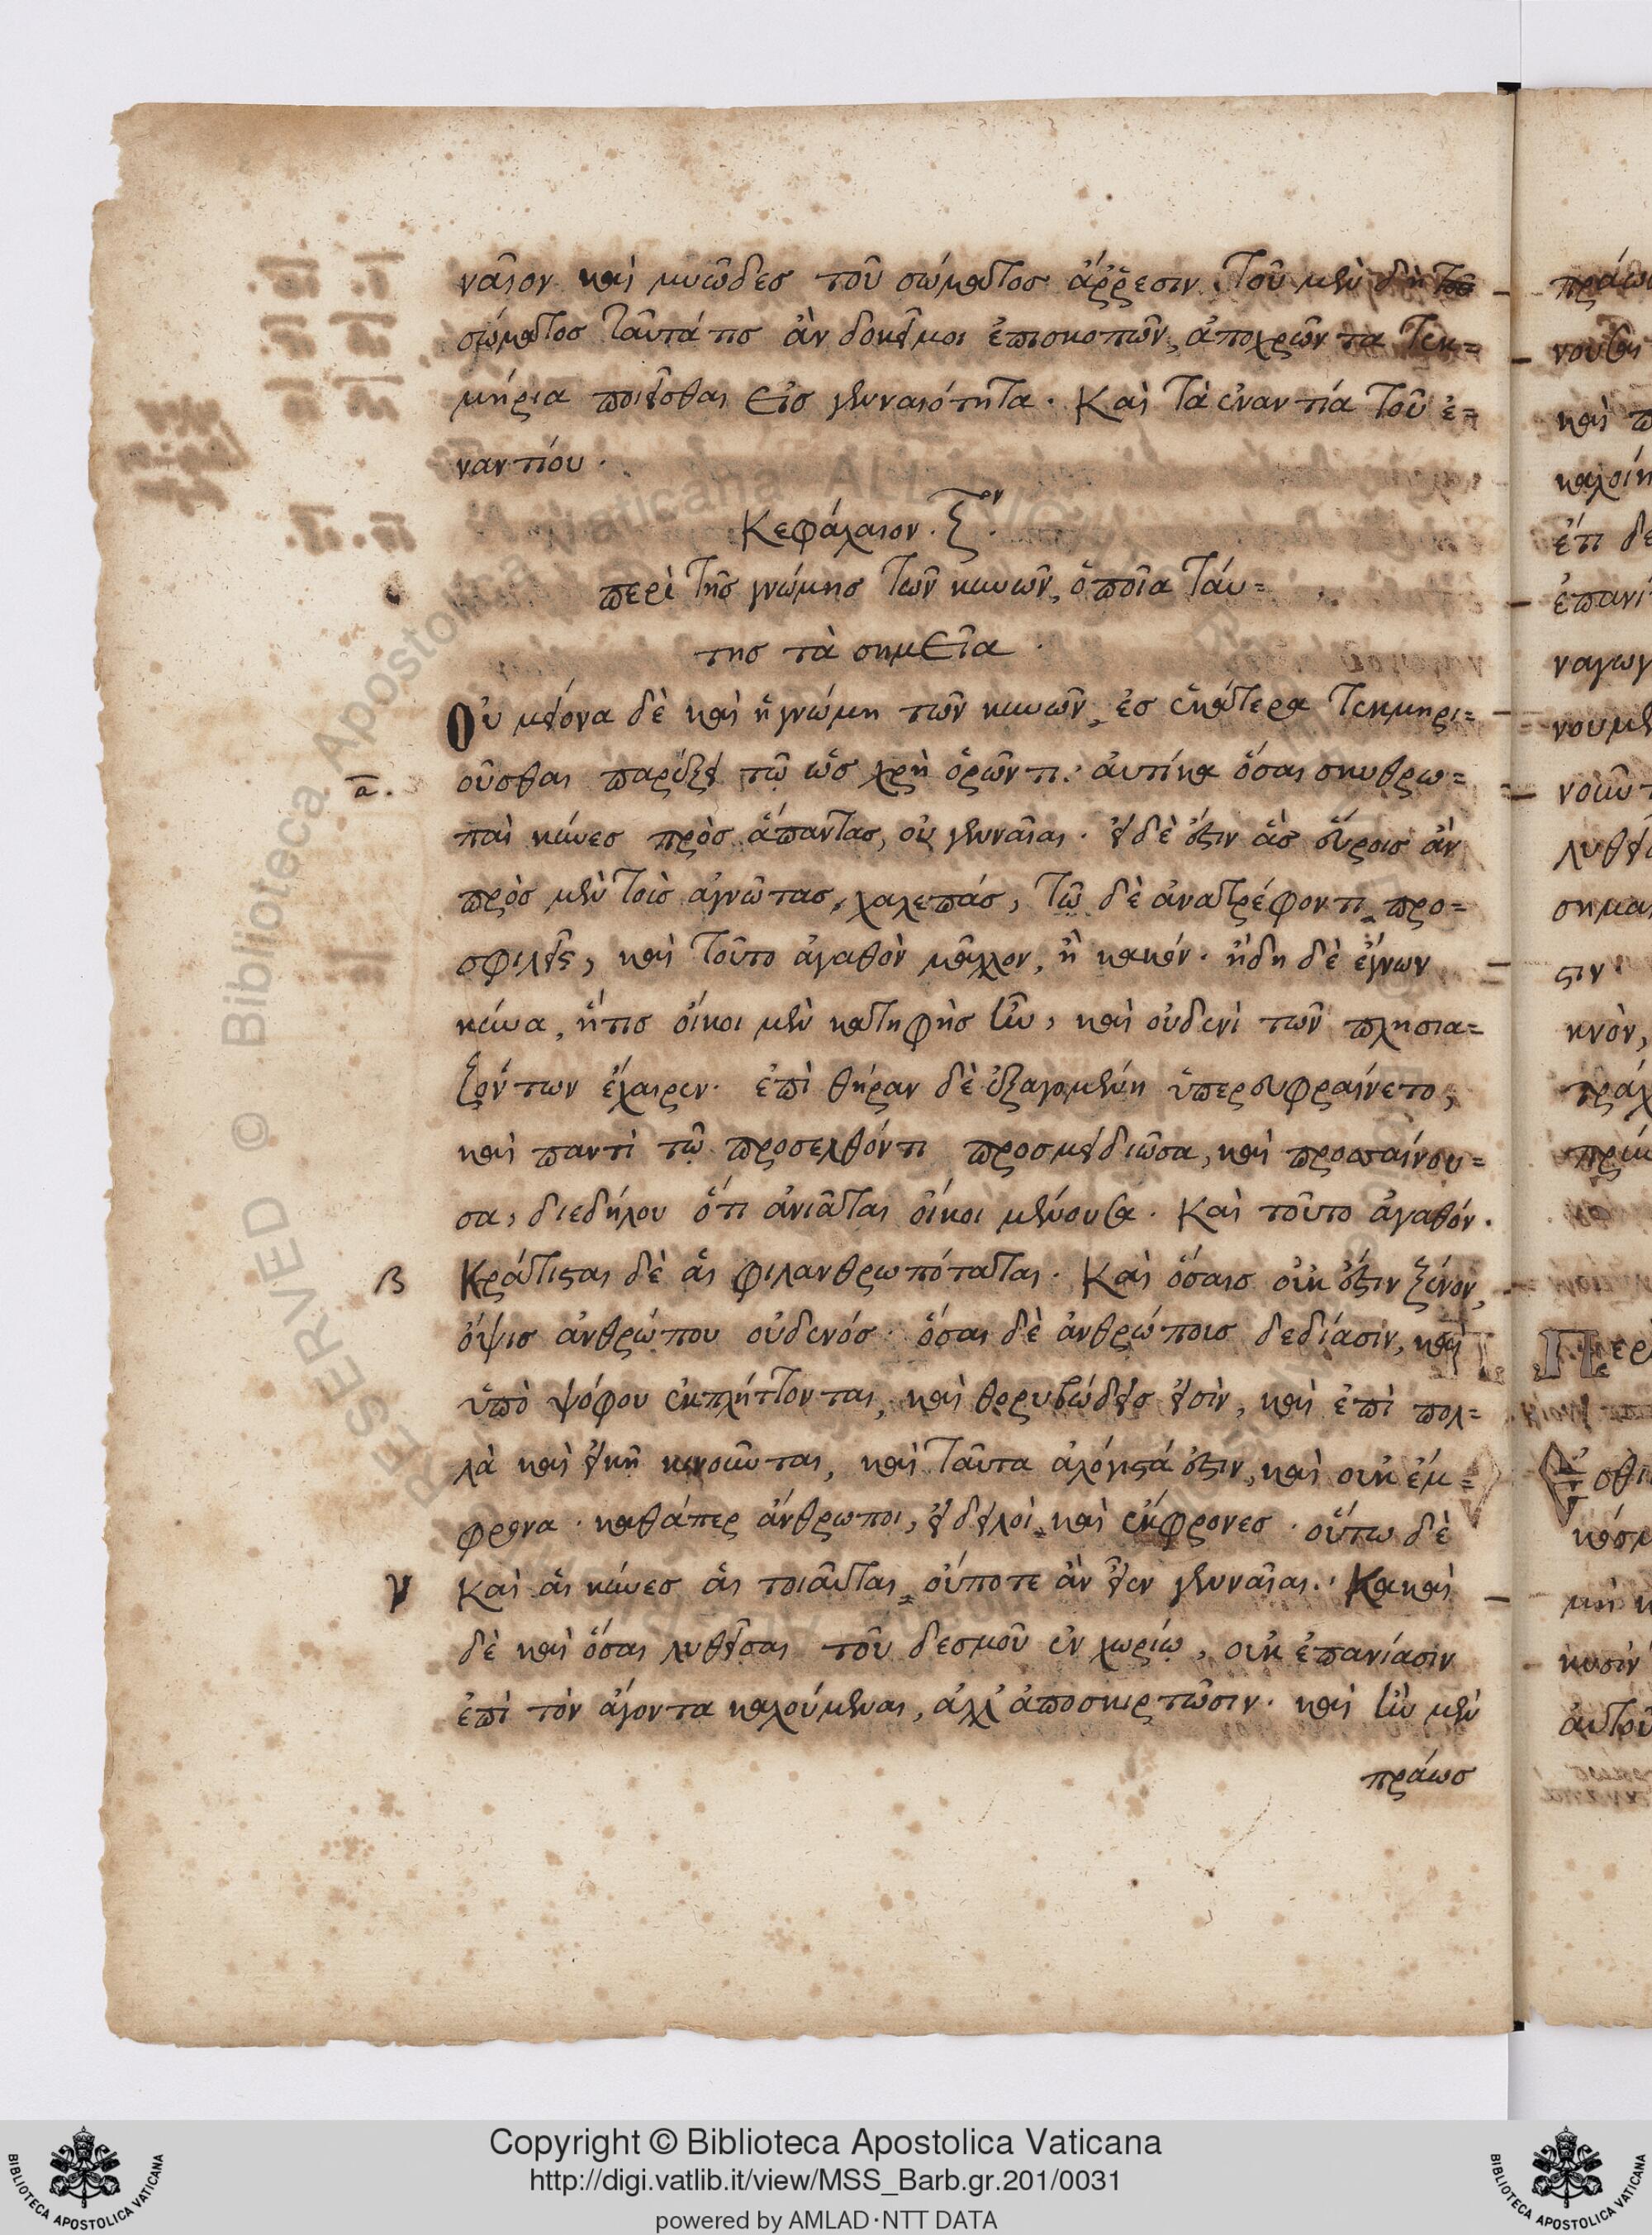 ναῖον καὶ μυῶδες τοῦ σώματος ἄῤῥεσιν. τοῦ μὲν δὴ τοῦ
σώματος ταῦτά τις ἂν δοκεῖ μοι ἐπισκοπῶν, ἀποχρῶντα τεκ=
μήρια ποιεῖσθαι εἰς γενναιότητα. Καὶ τὰ ἐναντία τοῦ ἐ=
ναντίου.
Κεφάλαιον. ζον.
περὶ τῆς γνώμης τῶν κυνῶν, ὁποῖα ταύ=
της τὰ σημεῖα.
Οὐ μείονα δὲ καὶ ἡ γνώμη τῶν κυνῶν, ἐς ἑκάτερα τεκμηρι=
α. οῦσθαι παρέξει τῷ ὡς χρὴ ὁρῶντι. αὐτίκα ὅσαι σκυθρω=
παὶ κύνες πρὸς ἅπαντας, οὐ γενναῖαι. εἰ δὲ ἔστιν ἃς εὕροις ἂν
πρὸς μὲν τοὺς ἀγνῶτας, χαλεπάς, τῷ δὲ ἀνατρέφοντι προ=
σφιλεῖς, καὶ τοῦτο ἀγαθὸν μᾶλλον, ἢ κακόν. ἤδη δὲ ἔγνων
κύνα, ἥτις οἴκοι μὲν κατηφὴς ἦν, καὶ οὐδενὶ τῶν πλησια=
ζόντων ἔχαιρεν. ἐπὶ θήραν δὲ ἐξαγομένη ὑπερευφραίνετο,
καὶ παντὶ τῷ προσελθόντι προσμειδιῶσα, καὶ προσσαίνου=
σα, διεδήλου ὅτι ἀνιᾶται οἴκοι μένουσα. Καὶ τοῦτο ἀγαθόν.
β Κράτισται δὲ αἱ φιλανθρωπόταται. Καὶ ὅσαις οὐκ ἔστιν ξένον,
ὄψις ἀνθρώπου οὐδενός. ὅσαι δὲ ἀνθρώποις δεδίασιν, καὶ
ὑπὸ ψόφου ἐκπλήττονται, καὶ θορυβώδεις εἰσὶν, καὶ ἐπὶ πολ=
λὰ καὶ εἰκῆ κινοῦνται, καὶ ταῦτα ἀλόγιστά ἐστιν, καὶ οὐκ ἔμ=
φρονα. καθάπερ ἄνθρωποι, οἱ δειλοὶ καὶ ἔκφρονες. οὕτω δὲ
γ Καὶ αἱ κύνες αἱ τοιαῦται, οὔποτε ἂν εἶεν γενναῖαι. Κακαὶ
δὲ καὶ ὅσαι λυθεῖσαι τοῦ δεσμοῦ ἐν χωρίῳ, οὐκ ἐπανίασιν
ἐπὶ τὸν ἄγοντα καλούμεναι, ἀλλ' ἀποσκιρτῶσιν. καὶ ἢν μὲν
πράως
Copyright © Biblioteca Apostolica Vaticana
http://digi.vatlib.it/view/MSS_Barb.gr.201/0031
powered by AMLAD·NTT DATA